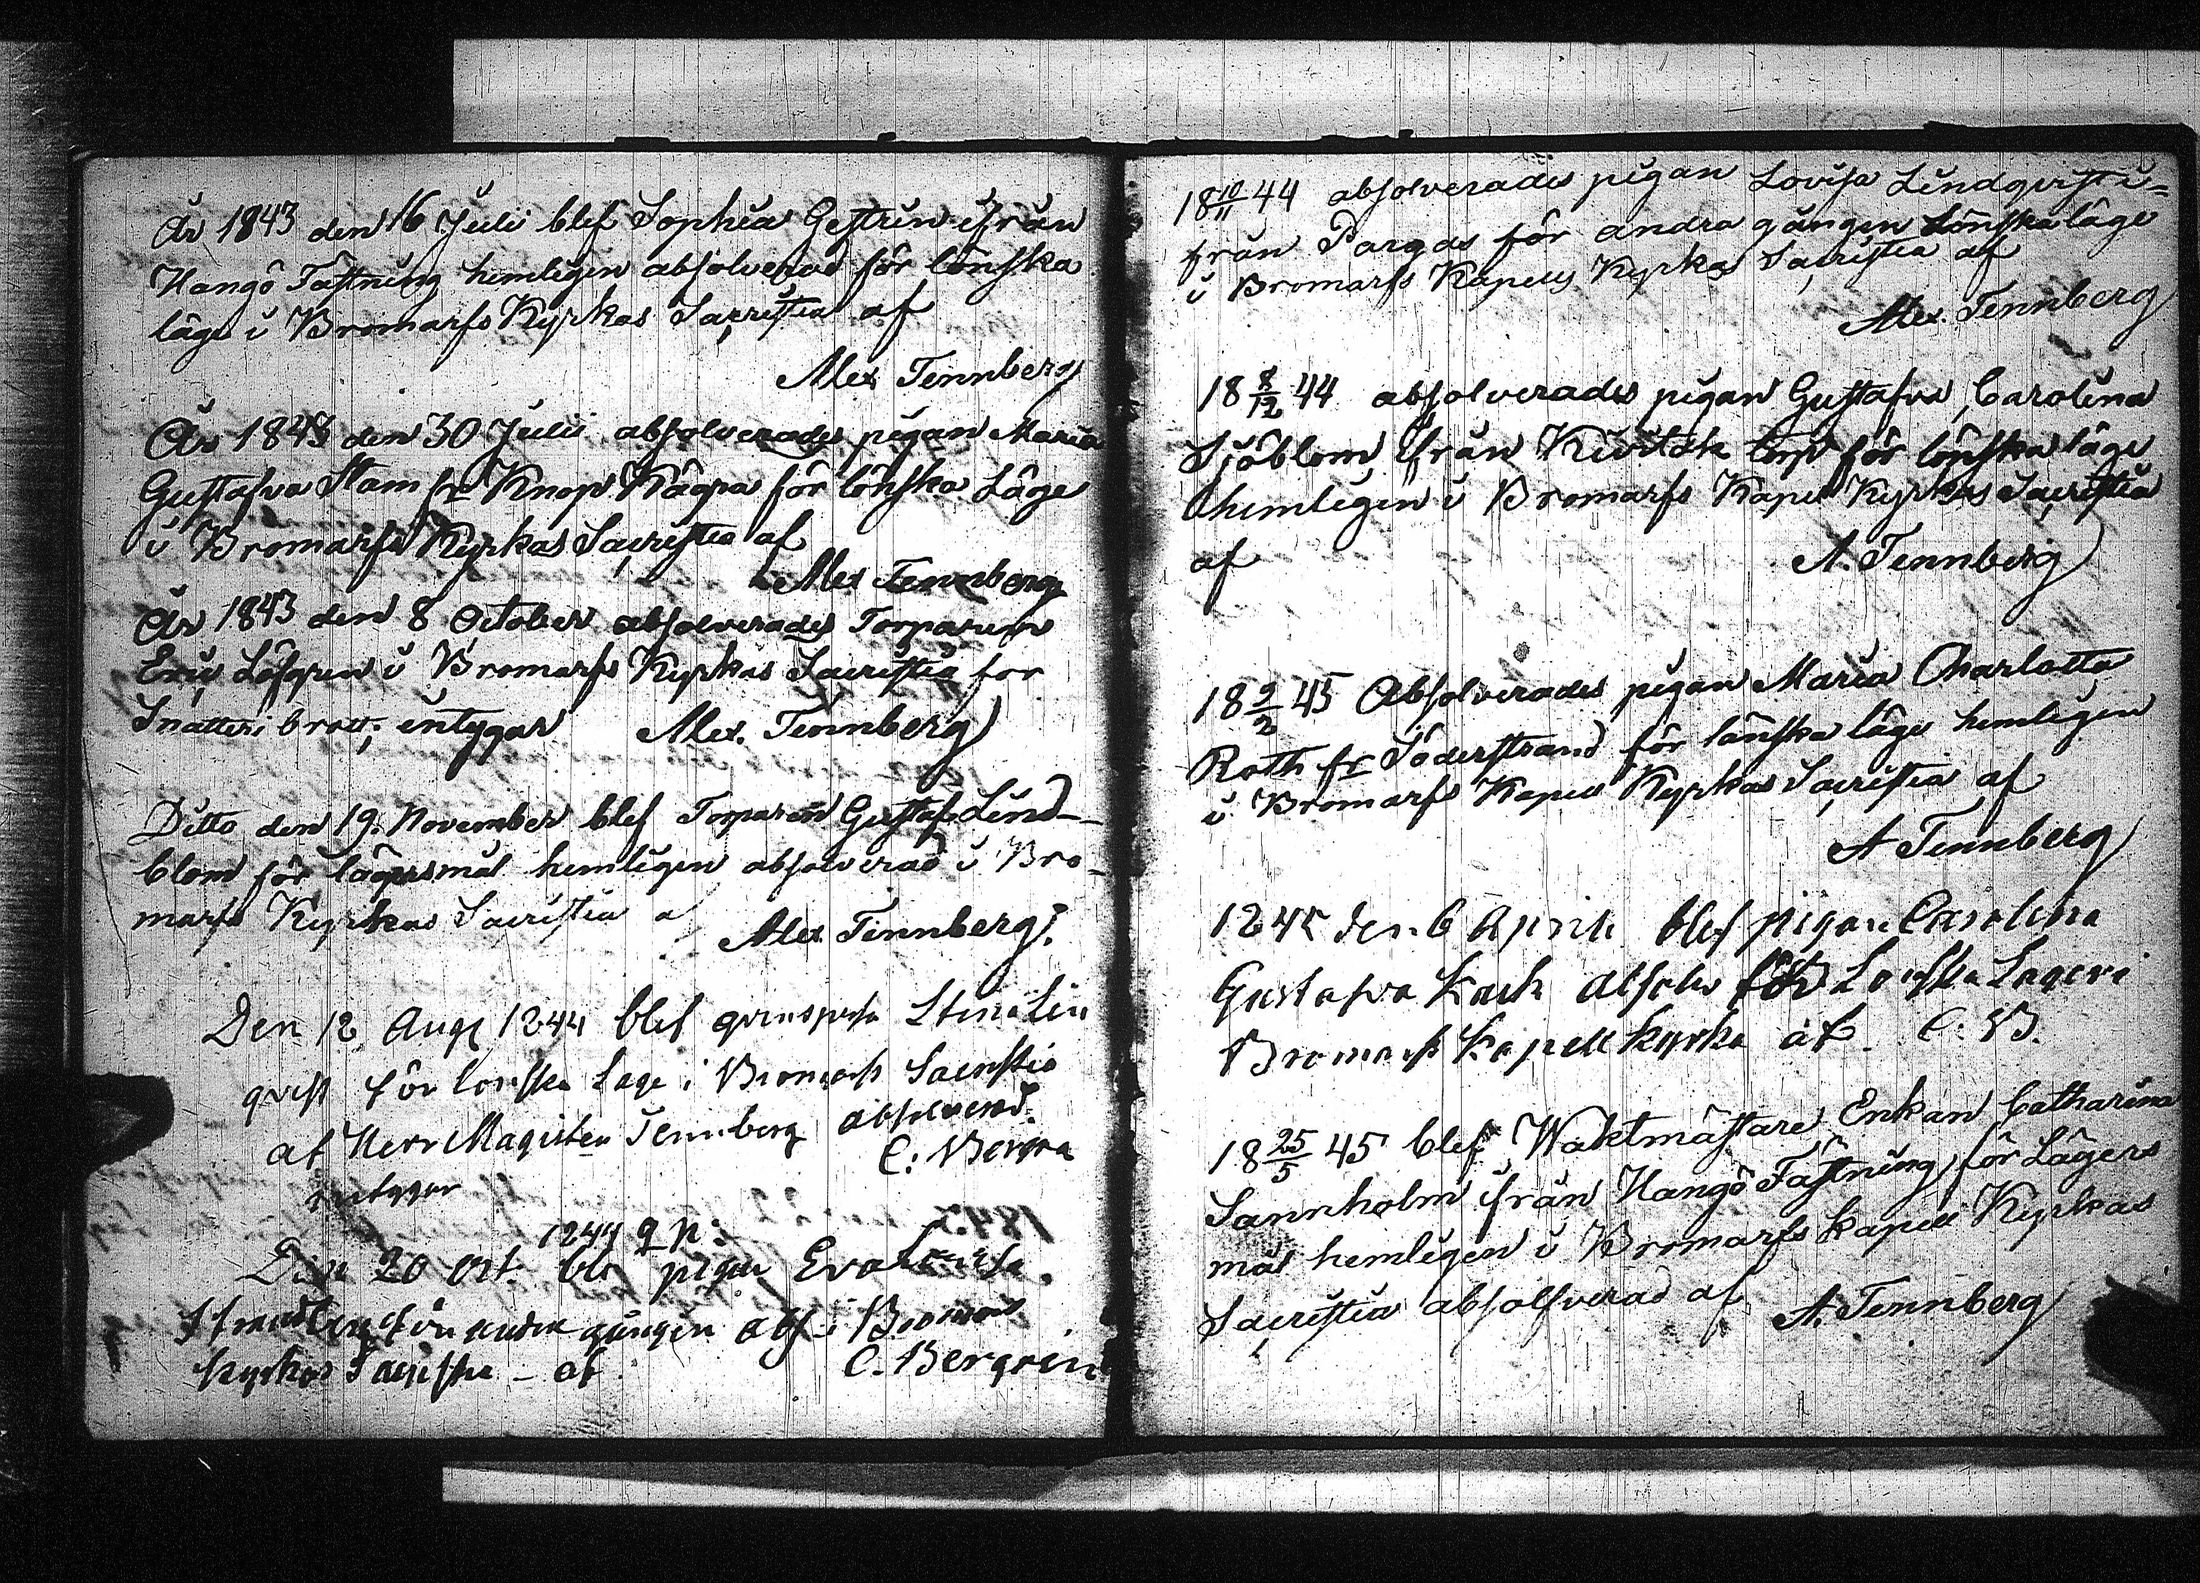 År 1843 den 16 Julii blef Sophia Gestrin ifrån
Hangö Fästning hemligen absolverad för lönska
läge i Bromarfs Kyrkas Sacristia af
Alex Tennberg
År 1843 den 30 Julii absolverades pigan Maria
Gustafva Stam fr Knop Kägra för lönska Läge
i Bromarfs Kyrkas Sacristia af
Alex Tennberg
År 1843 den 8 October absolverades Torparen
Eric Löfgren i Bromarfs Kyrkas Sacristia for
Snatteri brott; intygar Alex. Tennberg
Ditto den 19. November blef Torparen Gustaf Lind-
blom för lägersmål hemligen absolverad i Bro-
marfs Kyrkas Sacristia a
Alex Tennberg.
Den 18 Aug 1844 blef qvinspers Stina Lin
qvist för lonska Lage i Bromarfs Sacristia
af Herr Magister Tennberg absolverad.
intygar C: Bergra
1844
Den 20 Oct. ble pigan Eva Lovisa
för andra gången abs i Bromarfs
kyrkas Sacristia - af C. Bergrin
18 10/11 44 absolverades pigan Lovisa Lindqvist i=
från Pargas för andra gången lönska läge
i Bromarfs Kapells Kyrkas Sacristia af
Alex. Tennberg
18 8/12 44 absolverades pigan Gustafva Carolina
Sjöblom ifrån torp för lönska läge
hemligen i Bromarfs Kapell Kyrkas Sacristia
af A. Tennberg
18 9/2 45 Absolverades pigan Maria Charlotta
Roth fr Söderstrand för lönska läge hemligen
i Bromarfs Kapell Kyrkas Sacristia af
A Tennberg
1845 den 6 April blef pigan Carolina
Gustafva absolv för Lonska Lager i
Bromarfs Kapell kyrka af C. B.
18 25/5 45 blef Waktmästare Enkan Catharina
Sannholm ifrån Hangö Fästning för Lägers
mål hemligen i Bromarfs kapell Kyrkas
Sacristia absolfverad af A. Tennberg